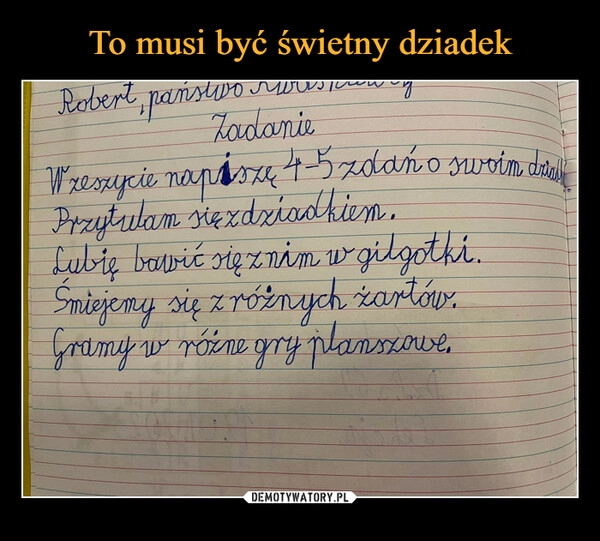 To musi być świetny dziadek
Robert, państwo
Zadanie
W zeszycie napiszę 4-5 zdań o swoim
Przytulam się z dziadkiem.
Lubię bawić się z nim w gilgotki.
Śmiejemy się z różnych żartów.
Gramy w różne gry planszowe.
DEMOTYWATORY.PL